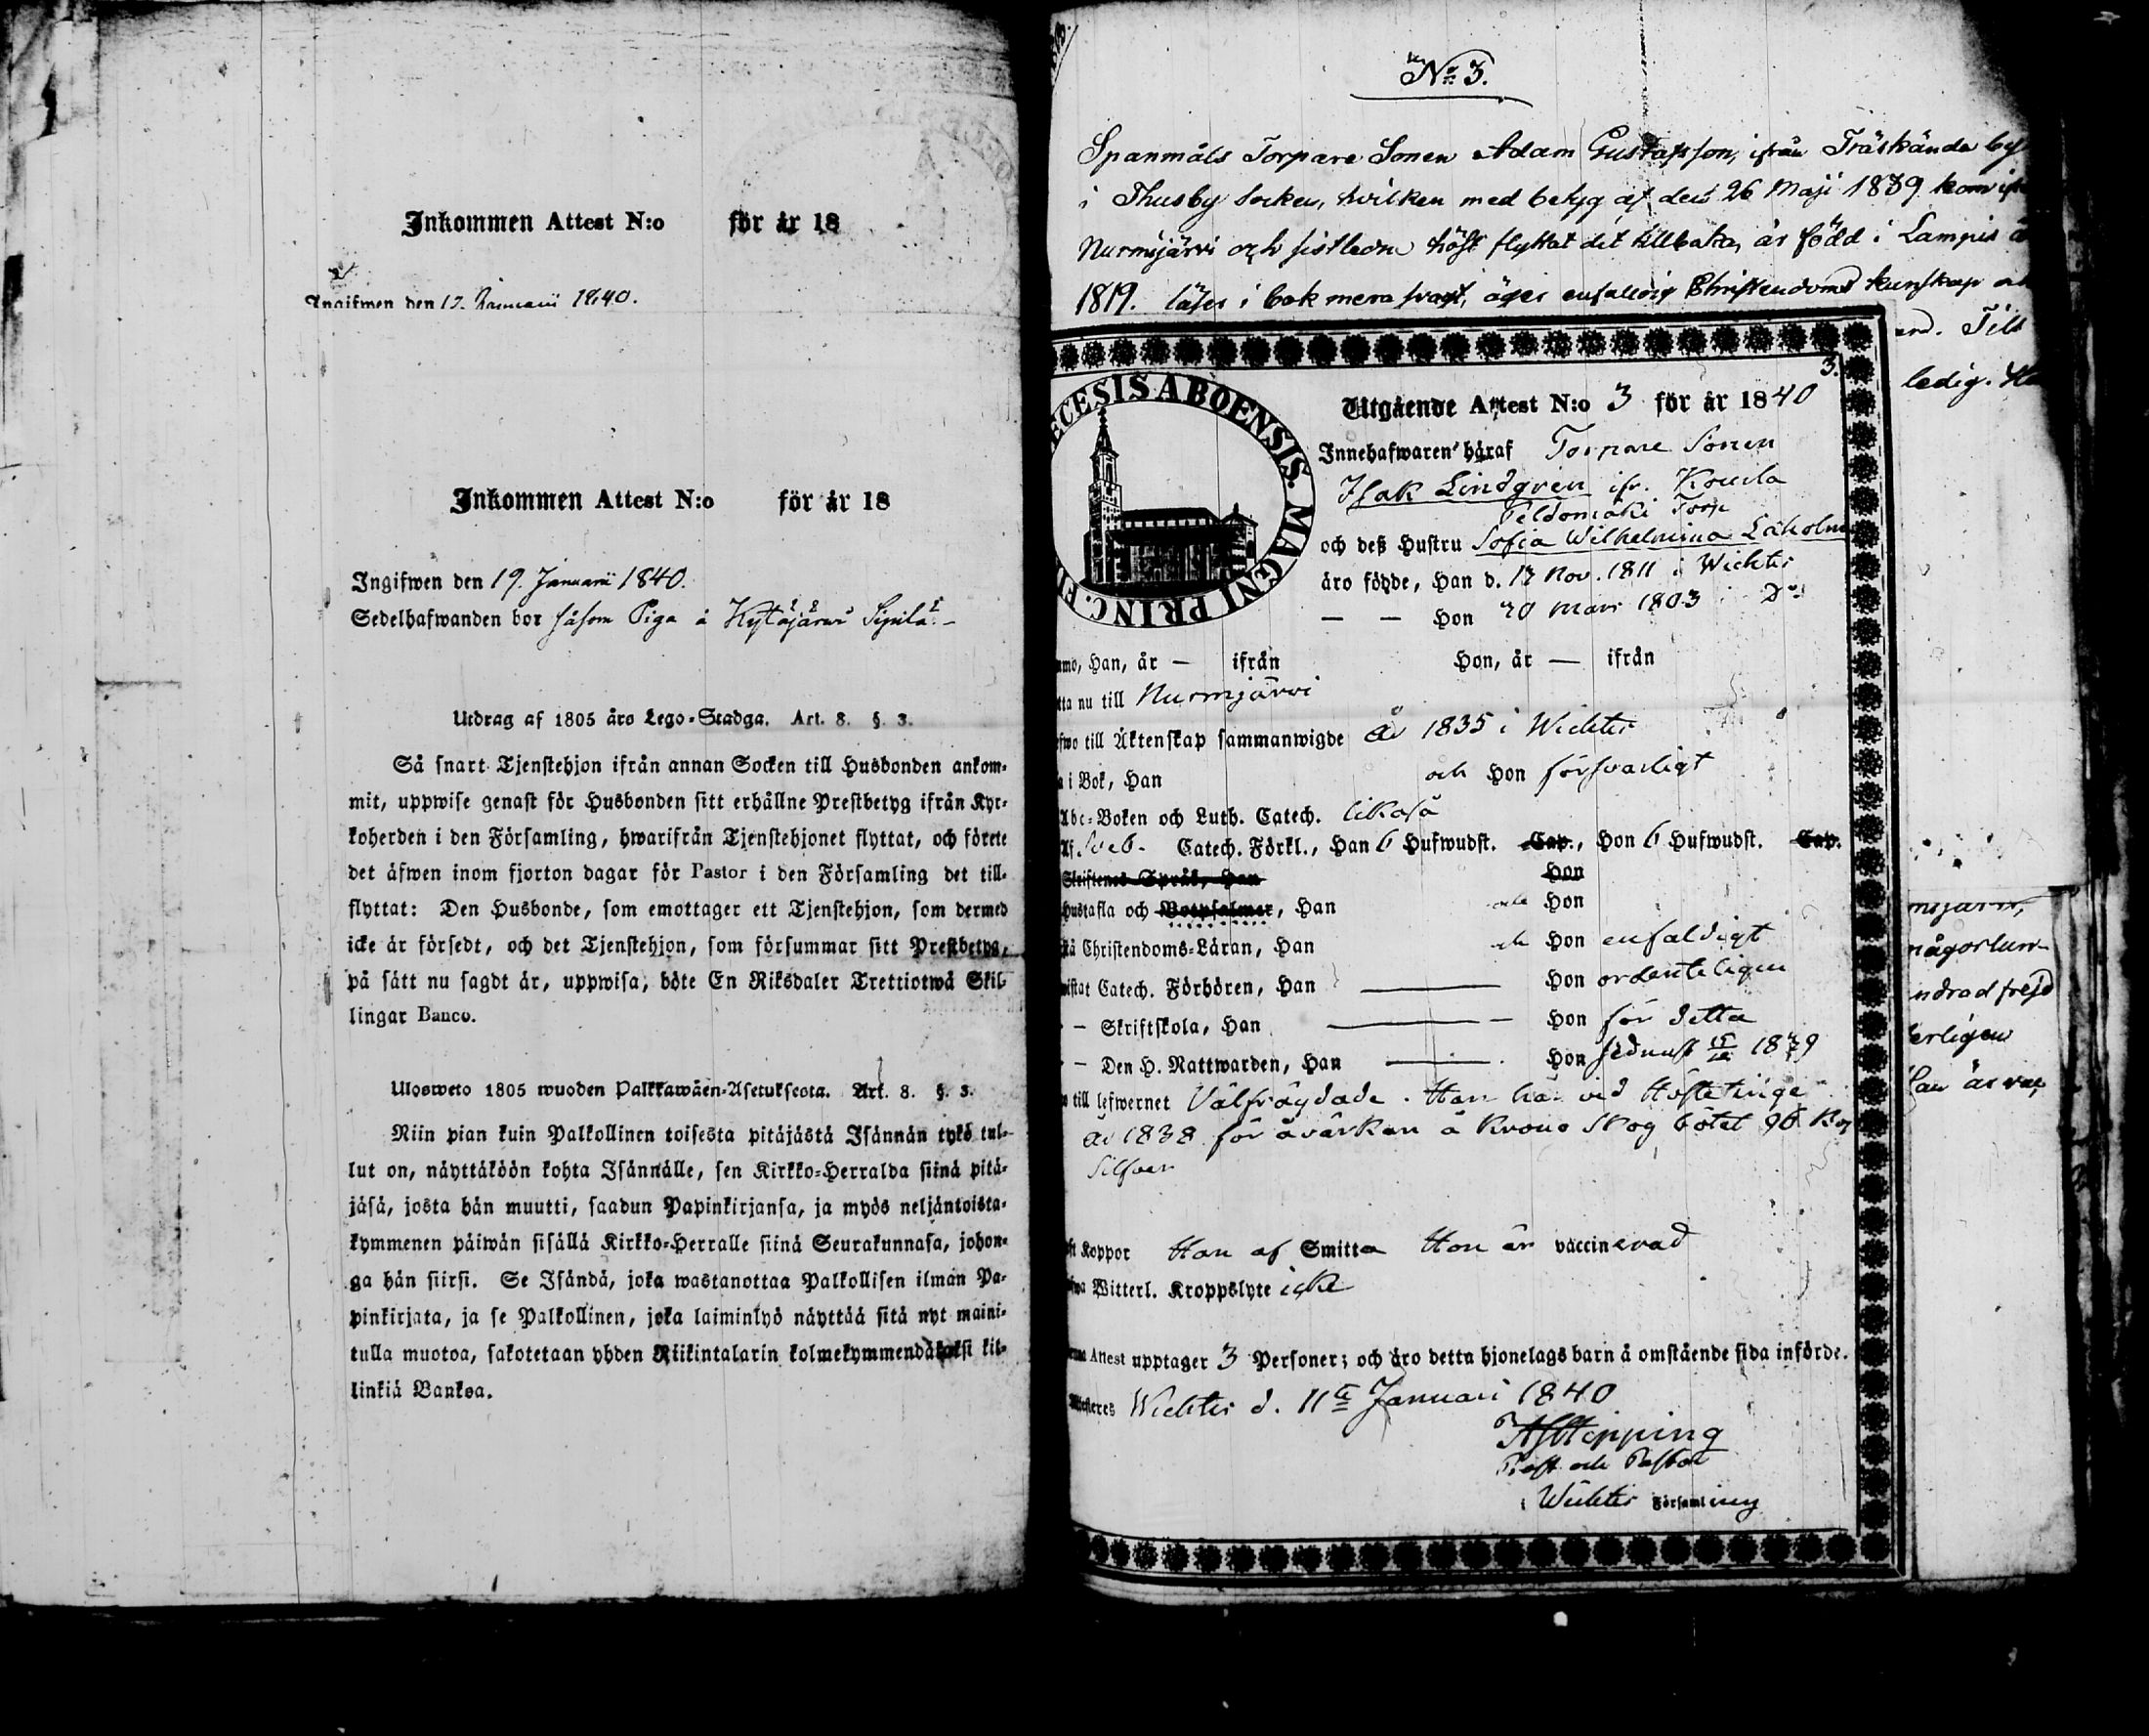 Inkommen Attest N:o för år 18
Ingifwen den 17. Januarii 1840.
Inkommen Attest N:o för år 18
Ingifwen den 19. Januarii 1840.
Sedelhafwanden bor såsom Piga å Hytäjärwi Sipilä.
Utdrag af 1805 års Lego-Stadga. Art. 8. §. 3.
Så snart Tjenstehjon ifrån annan Socken till Husbonden ankom-
mit, uppwise genast för Husbonden sitt erhållne Prestbetyg ifrån Kyr-
koherden i den Församling, hwarifrån Tjenstehjonet flyttat, och förete
det äfwen inom fjorton dagar för Pastor i den Församling det till-
flyttat: Den Husbonde, som emottager ett Tjenstehjon, som dermed
icke är försedt, och det Tjenstehjon, som försummar sitt Prestbetyg,
på sätt nu sagdt är, uppwisa, böte En Riksdaler Trettiotwå Skil-
lingar Banco.
Ulosweto 1805 wuoden Palkkawäen-Asetuksesta. Art. 8. §. 3.
Niin pian kuin Palkollinen toisesta pitäjästä Isännän tykö tul-
lut on, näyttäköön kohta Isännälle, sen Kirkko-Herralda siinä pitä-
jäsä, josta hän muutti, saadun Papinkirjansa, ja myös neljäntoista-
kymmenen päiwän sisällä Kirkko-Herralle siinä Seurakunnasa, johon-
ga hän siirsi. Se Isändä, joka wastanottaa Palkollisen ilman Pa-
pinkirjata, ja se Palkollinen, joka laiminlyö näyttää sitä nyt maini-
tulla muotoa, sakotetaan yhden Riikintalarin kolmekymmendäkaksi kil-
linkiä Bankoa.
No 3.
Spanmåls Torpare Sonen Adam Gustafsson, ifrån Träskända by
i Thusby Socken, hvilken med betyg af den 26 Maji 1839 kom
Nurmijärvi och sistledne höst flyttat dit tillbaka, är född i Lampis
1819. läser i bok mera svagt, äger enfaldig Christendoms kunskap
Till
ledig.
ECESIS ABOENSIS. MAGNI PRINC.
3.
Utgående Attest N:o 3 för år 1840
Innehafwaren häraf Torpare Sonen
Isak Lindgren ifr. Krouila
Torp
och deß Hustru Sofia Wilhelmina
äro födde, Han d. 17 Nov. 1811 i Wichtis
— — Hon 20 Mars 1803 i Do
Han, år — ifrån Hon, år — ifrån
nu till Nurmijärvi
till Äktenskap sammanwigde år 1835 i Wichtis
i Bok, Han och Hon försvarligt
Abc-Boken och Luth. Catech. likaså
Af Sveb. Catech. Förkl., Han 6 Hufwudst. Cap., Hon 6 Hufwudst. Cap.
Skriftenes Språk, Han Hon
Hustafla och Botpsalmer, Han och Hon
Christendoms-Läran, Han och Hon enfaldigt
Catech. Förhören, Han — Hon ordenteligen
— Skriftskola, Han — Hon för detta
— Den H. Nattwarden, Han — Hon sednast 1839
till lefwernet Välfrägdade. Han har vid Höste tinge
år 1838 för åvärkan å Krono Skog bötat 96 Kop
Silfver
Koppor Han af Smitta Hon är vaccinerad
Witterl. Kroppslyte icke
Attest upptager 3 Personer; och äro detta hjonelags barn å omstående sida införde.
Wichtis d. 11te Januari 1840
Prost och Pastor
i Wichtis Församling
någorlun-